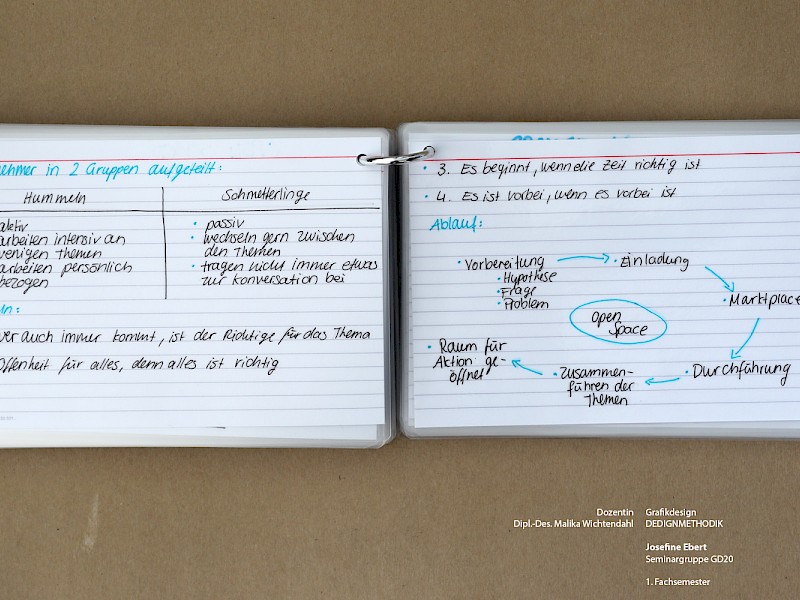 ehmer in 2 Gruppen aufgeteilt:
Hummeln
Schmetterlinge
aktiv
arbeiten intensiv an
wenigen Themen
arbeiten persönlich
bezogen
• passiv
• wechseln gern zwischen
den Themen
• tragen nicht immer etwas
zur Konversation bei
ln:
ver auch immer kommt, ist der Richtige für das Thema
Offenheit für alles, denn alles ist richtig
• 3. Es beginnt, wenn die Zeit richtig ist
• 4. Es ist vorbei, wenn es vorbei ist
Ablauf:
• Vorbereitung
• Hypothese
• Frage
• Problem
• Einladung
• Marktplatz
Open
Space
• Durchführung
• Zusammen-
führen der
Themen
• Raum für
Aktion ge-
öffnet
Dozentin
Dipl.-Des. Malika Wichtendahl
Grafikdesign
DEDIGNMETHODIK
Josefine Ebert
Seminargruppe GD20
1. Fachsemester